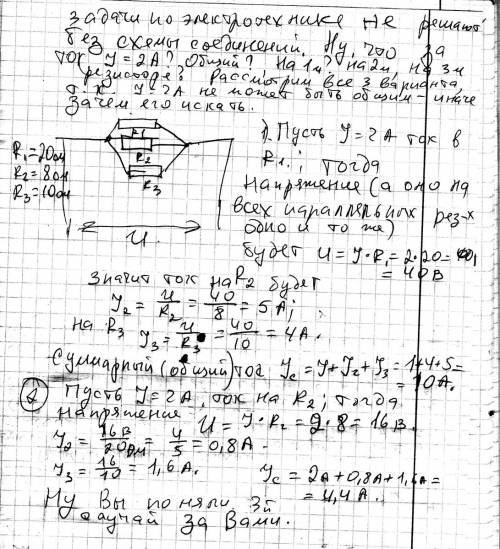 Задачи по электротехнике не решают
без схемы соединений. Ну, что за
ток I = 2А? Общий? На 1м? на 2м, на 3м
резисторе? Рассмотрим все 3 варианта,
т.к. I = 2А не может быть общим – иначе
зачем его искать.
R1
R2
R3
R1=20ом
R2=8ом
R3=10ом
U
1). Пусть I = 2А ток в
R1.; тогда
напряжение (а оно на
всех параллельных рез-х
одно и то же)
будет U = I·R1 = 2·20 =
= 40В
значит ток на R2 будет
I2 = U/R2 = 40/8 = 5А;
на R3
I3 = U/R3 = 40/10 = 4А.
Суммарный (общий) ток Ic = I+I2+I3 = 1+4+5 =
= 10А.
2 Пусть I = 2А, ток на R2; тогда
напряжение U = I·R2 = 2·8 = 16В.
I2 = 16В/20ом = 4/5 = 0,8А.
I3 = 16/10 = 1,6А.
Ic = 2А+0,8А+1,6А =
= 4,4А.
Ну Вы поняли 3й
случай за Вами.